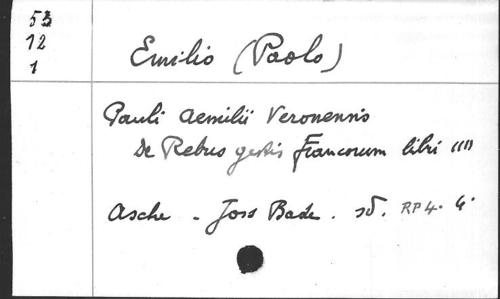 53
12
1
Emilio (Paolo)
Pauli Aemilii Veronensis
De Rebus gestis Francorum libri IIII
Asche - Joss Bade. sd. RP4. 4°